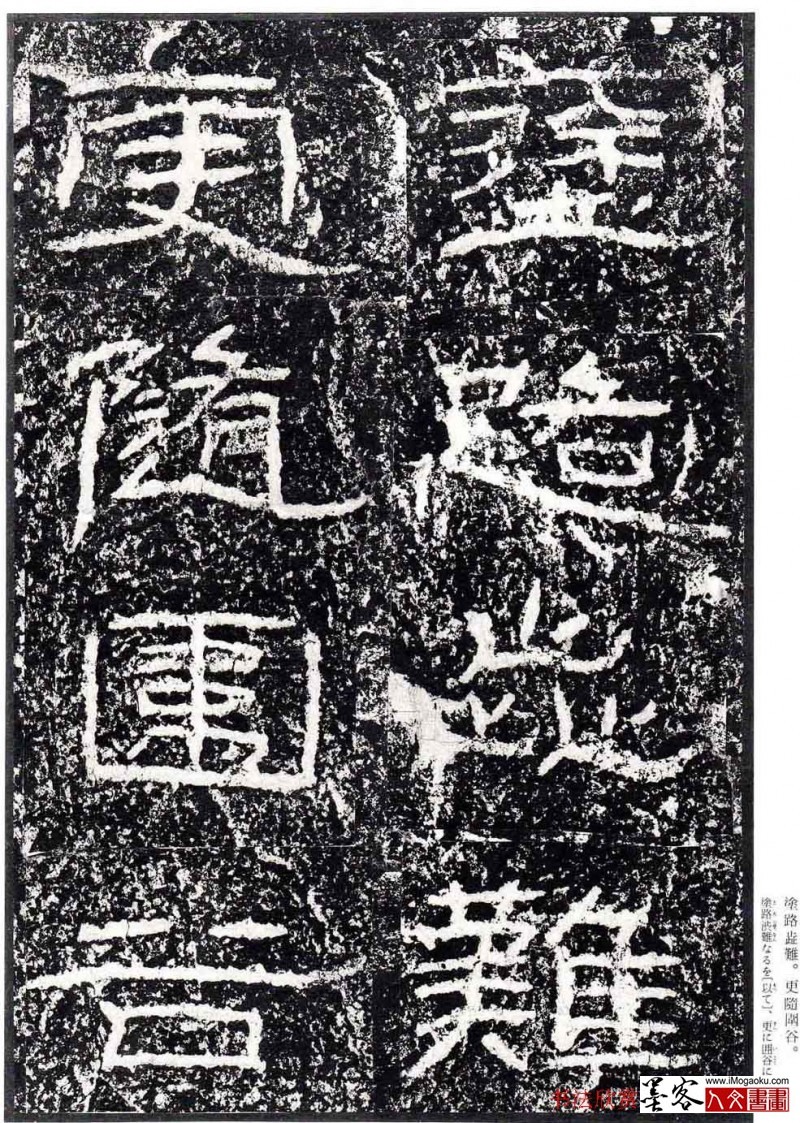 塗路歰難
更隨圍谷
塗路歮難。更隨圍谷。
塗路渋難なるを〔以て〕、更に囲谷に
书法欣赏
墨客
www.iMogaoku.com
人文書畫